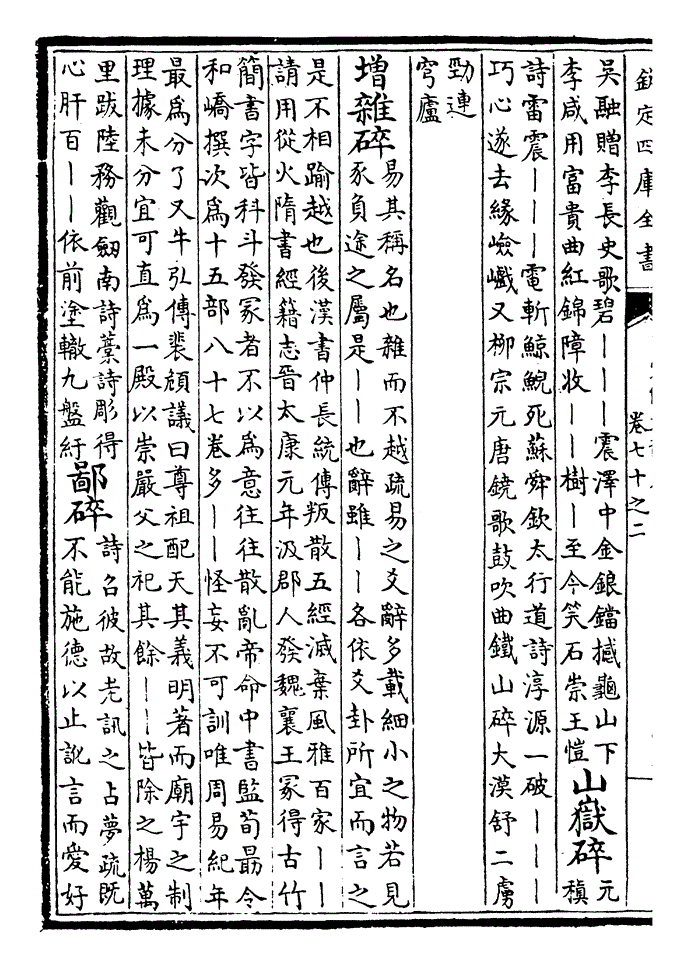 欽定四庫全書
卷七十之二
吳融贈李長史歌碧｜｜｜震澤中金鋃鐺撼龜山下
李咸用富貴曲紅錦障收｜｜樹｜至今笑石崇王愷
山嶽碎
元
稹
詩雷震｜｜｜電斬鯨鯢死蘇舜欽太行道詩淳源一破｜｜｜
巧心遂去緣嶮巇又柳宗元唐鐃歌鼓吹曲鐵山碎大漠舒二虜
勁連
穹廬
增雜碎
易其稱名也雜而不越疏易之爻辭多載細小之物若見
豕負途之屬是｜｜也辭雖｜｜各依爻卦所宜而言之
是不相踰越也後漢書仲長統傳叛散五經滅棄風雅百家｜｜
請用從火隋書經籍志晉太康元年汲郡人發魏襄王冢得古竹
簡書字皆科斗發冢者不以為意往往散亂帝命中書監荀勗令
和嶠撰次為十五部八十七卷多｜｜怪妄不可訓唯周易紀年
最為分了又牛弘傳裴頠議曰尊祖配天其義明著而廟宇之制
理據未分宜可直為一殿以崇嚴父之祀其餘｜｜皆除之楊萬
里跋陸務觀劒南詩藁詩彫得
心肝百｜｜依前塗轍九盤紆
鄙碎
詩召彼故老訊之占夢疏既
不能施德以止訛言而愛好